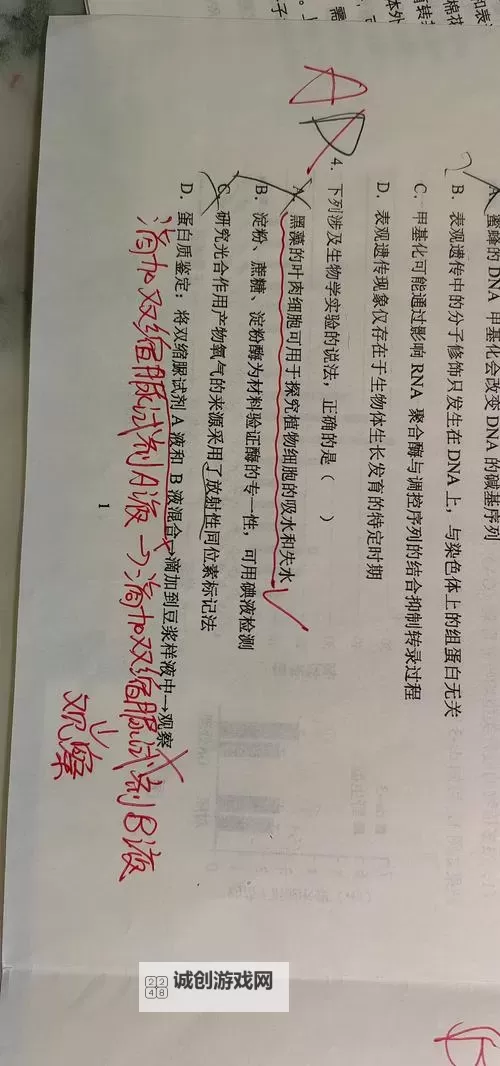 A. 蜜蜂的 DNA 甲基化会改变 DNA 的碱基序列
B. 表观遗传中的分子修饰只发生在 DNA 上，与染色体上的组蛋白无关
C. 甲基化可能通过影响 RNA 聚合酶与调控序列的结合抑制转录过程
D. 表观遗传现象仅存在于生物体生长发育的特定时期
A
4. 下列涉及生物学实验的说法，正确的是（ ）
A. 黑藻的叶肉细胞可用于探究植物细胞的吸水和失水
B. 淀粉、蔗糖、淀粉酶为材料验证酶的专一性，可用碘液检测
C. 研究光合作用产物氧气的来源采用了放射性同位素标记法
D. 蛋白质鉴定：将双缩脲试剂 A 液和 B 液混合→滴加到豆浆样液中→观察
滴加双缩脲试剂A液→滴加双缩脲试剂B液
↓
观察
1
2248
诚创游戏网